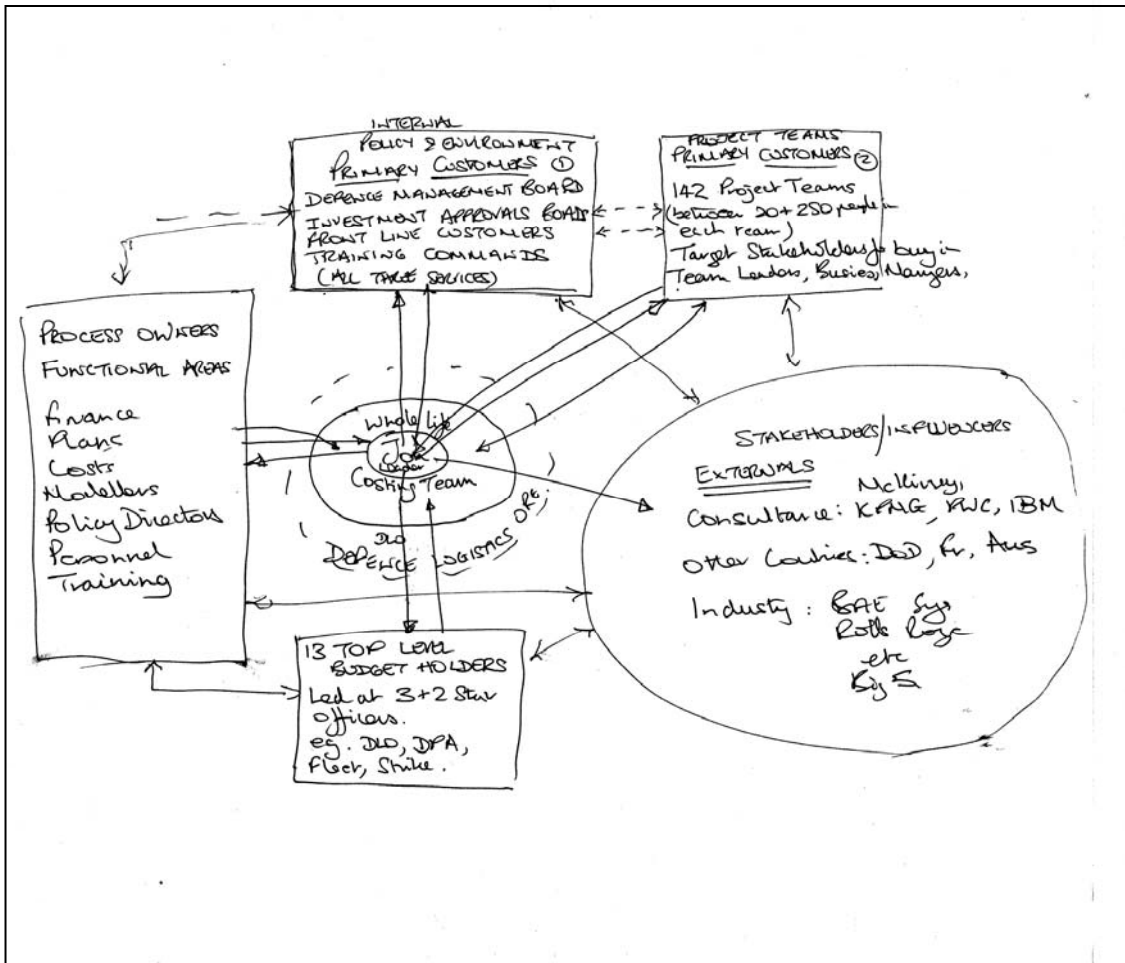 INTERNAL
POLICY & ENVIRONMENT
PRIMARY CUSTOMERS ①
DEFENCE MANAGEMENT BOARD
INVESTMENT APPROVALS BOADS
FRONT LINE CUSTOMERS
TRAINING COMMANDS
(ALL THREE SERVICES)
PROJECT TEAMS
PRIMARY CUSTOMERS ②
142 Project Teams
(between 20+250 people in
each team)
Target Stakeholders for buy in
Team Leaders, Busies, Mangers,
PROCESS OWNERS
FUNCTIONAL AREAS
Finance
Plans
Costs
Modellers
Policy Directors
Personnel
Training
Whole Life
Leader
Costing Team
DLO
DEFENCE LOGISTICS ORG,
STAKEHOLDERS/INFLUENCERS
EXTERNALS
McKinsey,
Consultance: KPMG, PWC, IBM
Other Countries: DoD, Fr, Aus
Industry : BAE Sys
Rolls Royc
etc
Big 5
13 TOP LEVEL
BUDGET HOLDERS
Led at 3+2 Star
officers.
eg. DLO, DPA,
Fleet, Strike.